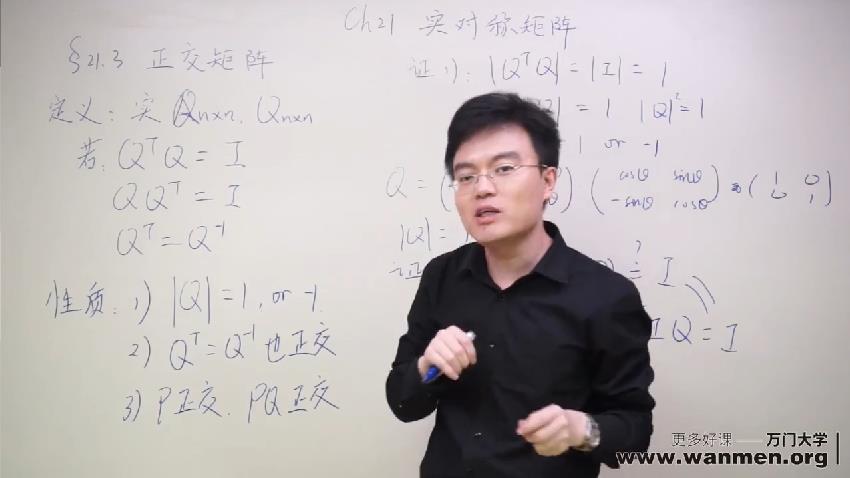 Ch21 实对称矩阵
§21.3 正交矩阵
定义: 实 Qn×n. Qn×n
若: QᵀQ = I
QQᵀ = I
Qᵀ = Q⁻¹
性质: 1) |Q| = 1, or -1.
2) Qᵀ = Q⁻¹ 也正交
3) P正交. PQ正交
证 1): |QᵀQ| = |I| = 1
= 1 |Q|² = 1
1 or -1
Q = ( ) ( cosθ sinθ
-sinθ cosθ ) = ( 1 0
0 1 )
|Q| = 1
证
? = I
IQ = I
更多好课 —— 万门大学
www.wanmen.org